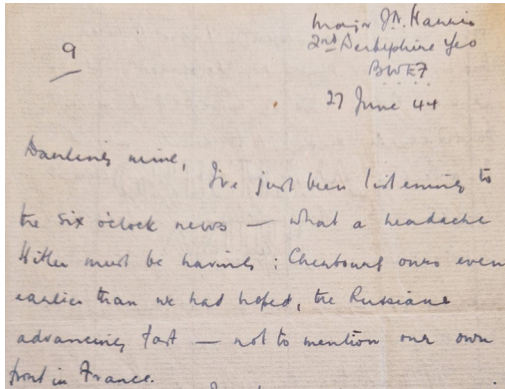 Major J.A. Harris
2nd Derbyshire Yeo
BWEF
9
27 June 44
Darling mine,
I've just been listening to
the six o'clock news — what a headache
Hitler must be having : Cherbourg ours even
earlier than we had hoped, the Russians
advancing fast — not to mention our own
front in France.